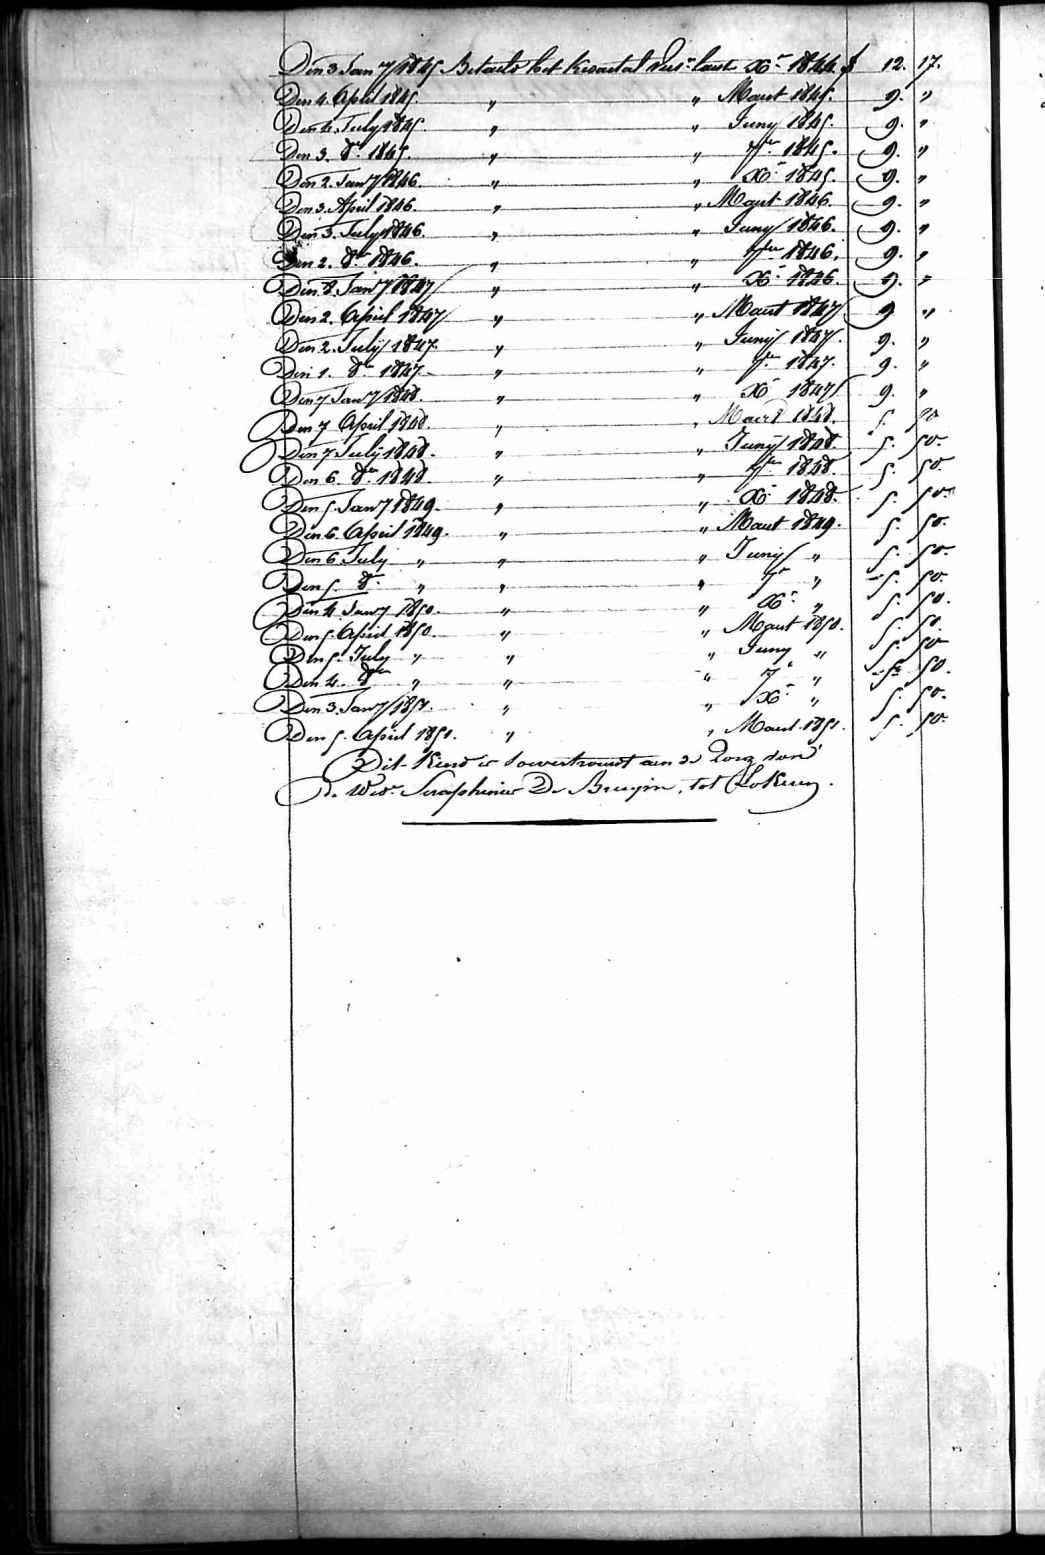 Den 3 Jan.y 1845 Betaeld het kwartal laest Xr 1844 f 12. 17.
Den 4. April 1845. " " Maert 1845. 9. "
Den 4. July 1845. " " Juny 1845. 9. "
Den 3. 8r 1845. " " 7br 1845. 9. "
Den 2. Jany 1846. " " Xr 1845. 9. "
Den 3. April 1846. " " Maert 1846. 9. "
Den 3. July 1846. " " Juny 1846. 9. "
Den 2. 8r 1846. " " 7ber 1846. 9. "
Den 8. Jany 1847 " " Xr 1846. 9. "
Den 2. April 1847 " " Maert 1847 9 "
Den 2. July 1847. " " Juny 1847. 9. "
Den 1. 8r 1847. " " 7br 1847. 9. "
Den 7 Jany 1848. " " Xr 1847 9. "
Den 7 April 1848. " " Maert 1848. 5. 50
Den 7 July 1848. " " Juny 1848 5. 50.
Den 6. 8r 1848 " " 7br 1848. 5. 50.
Den 5. Jany 1849. " " Xr 1848. 5. 50.
Den 6. April 1849. " " Maert 1849. 5. 50.
Den 6. July " " " Juny " 5. 50.
Den 5. 8r " " " 7r " 5. 50.
Den 4. Jany 1850. " " Xr " 5. 50.
Den 5. April 1850. " " Maert 1850. 5. 50.
Den 5. July " " " Juny " 5. 50
Den 4. 8r " " " 7r " 5. 50.
Den 3. Jany 1851. " " Xr " 5. 50.
Den 5. April 1851. " " Maert 1851. 5. 50.
Dit Kind is toevertrouwt aen de zorg van
De Wede Seraphinus De Bruyn, tot Lokeren.